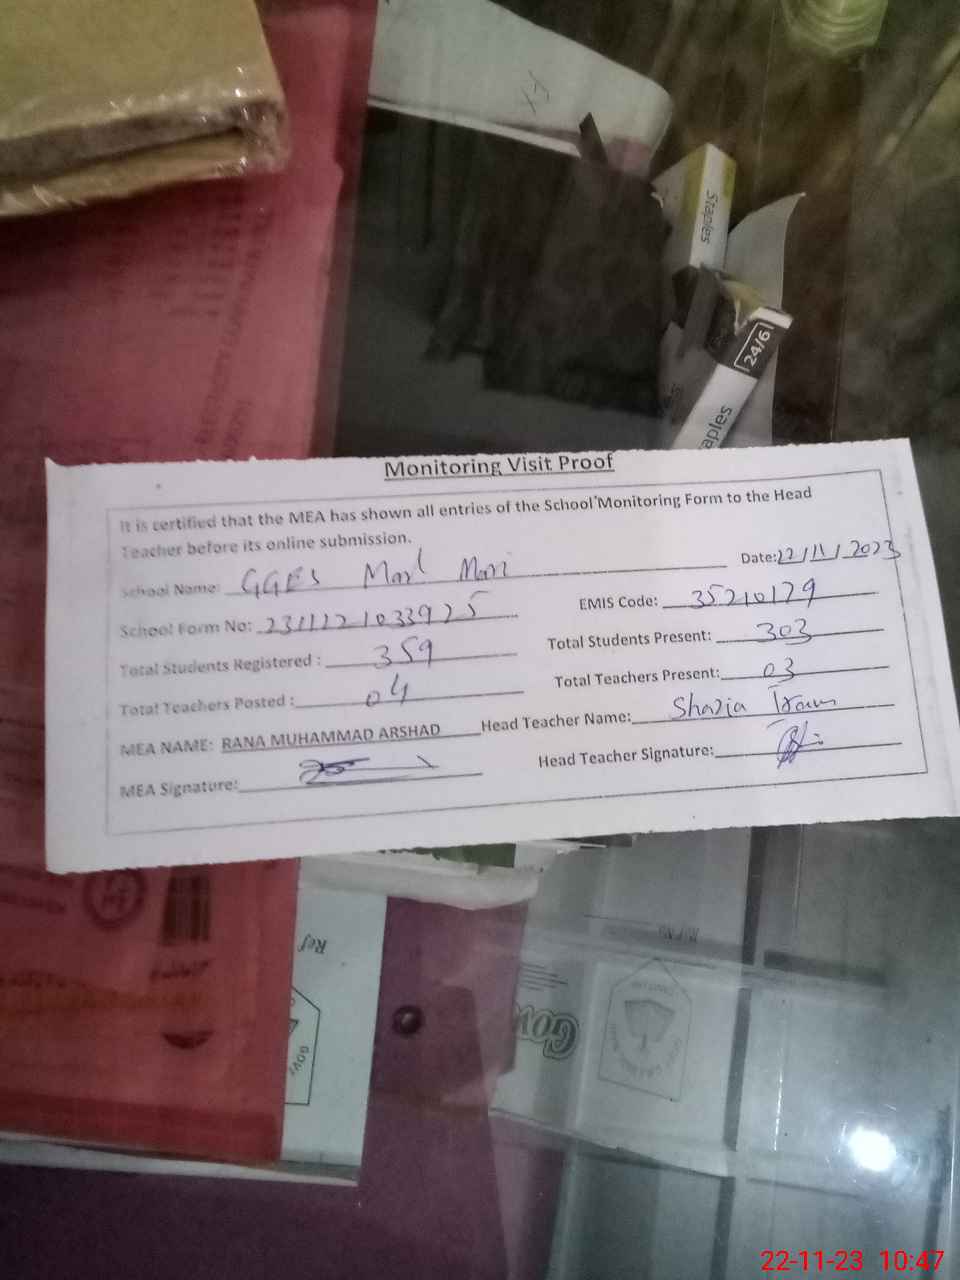 Staples
24/6
aples
Monitoring Visit Proof
It is certified that the MEA has shown all entries of the School Monitoring Form to the Head
Teacher before its online submission.
Date: 22/11/2023
School Name: GGES Marl Mari
School Form No: 2311221033925 EMIS Code: 35210179
Total Students Registered : 359 Total Students Present: 303
Total Teachers Posted : 04 Total Teachers Present: 03
MEA NAME: RANA MUHAMMAD ARSHAD Head Teacher Name: Shazia
MEA Signature: Head Teacher Signature:
Ref
GOVT
Gov
22-11-23 10:47